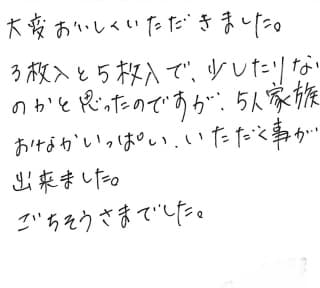 大変おいしくいただきました。
3枚入と5枚入で、少したりない
のかと思ったのですが、5人家族
おなかいっぱい、いただく事が
出来ました。
ごちそうさまでした。